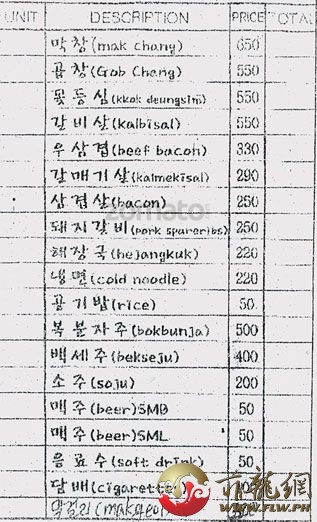 UNIT DESCRIPTION PRICE TOTAL
막창(mak chang) 650
곱창(Gob Chang) 550
꽃등심(kkok deungsim) 550
갈비살(kalbisal) 550
우삼겹(beef bacon) 330
갈매기살(kalmekisal) 290
삼겹살(bacon) 250
zomato
돼지갈비(pork spareribs) 250
해장국(hejangkuk) 220
냉면(cold noodle) 220
공기밥(rice) 50
복분자주(bokbunja) 500
백세주(bekseju) 400
소주(soju) 200
맥주(beer)SMB 50
맥주(beer)SML 50
음료수(soft drink) 50
담배(cigarette)
막걸리
WWW.FLW.PH